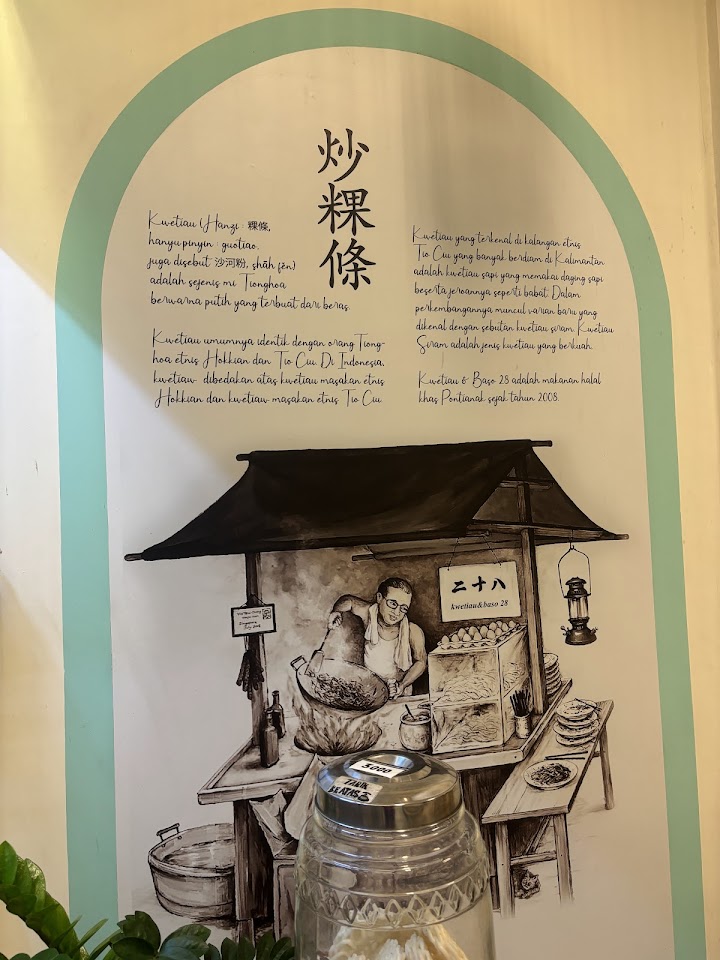 炒粿條
Kwetiau (Hanzi : 粿條,
hanyu pinyin : guotiao,
juga disebut 沙河粉, shāh fěn)
adalah sejenis mi Tionghoa
berwarna putih yang terbuat dari beras.
Kwetiau umumnya identik dengan orang Tiong-
hoa etnis Hokkian dan Tio Ciu. Di Indonesia,
kwetiau dibedakan atas kwetiau masakan etnis
Hokkian dan kwetiau masakan etnis Tio Ciu.
Kwetiau yang terkenal di kalangan etnis
Tio Ciu yang banyak berdiam di Kalimantan
adalah kwetiau sapi yang memakai daging sapi
beserta jeroannya seperti babat. Dalam
perkembangannya muncul varian baru yang
dikenal dengan sebutan kwetiau siram. Kwetiau
Siram adalah jenis kwetiau yang berkuah.
Kwetiau & Baso 28 adalah makanan halal
khas Pontianak sejak tahun 2008.
二十八
kwetiau&baso 28
5000
TARIK
KE ATAS